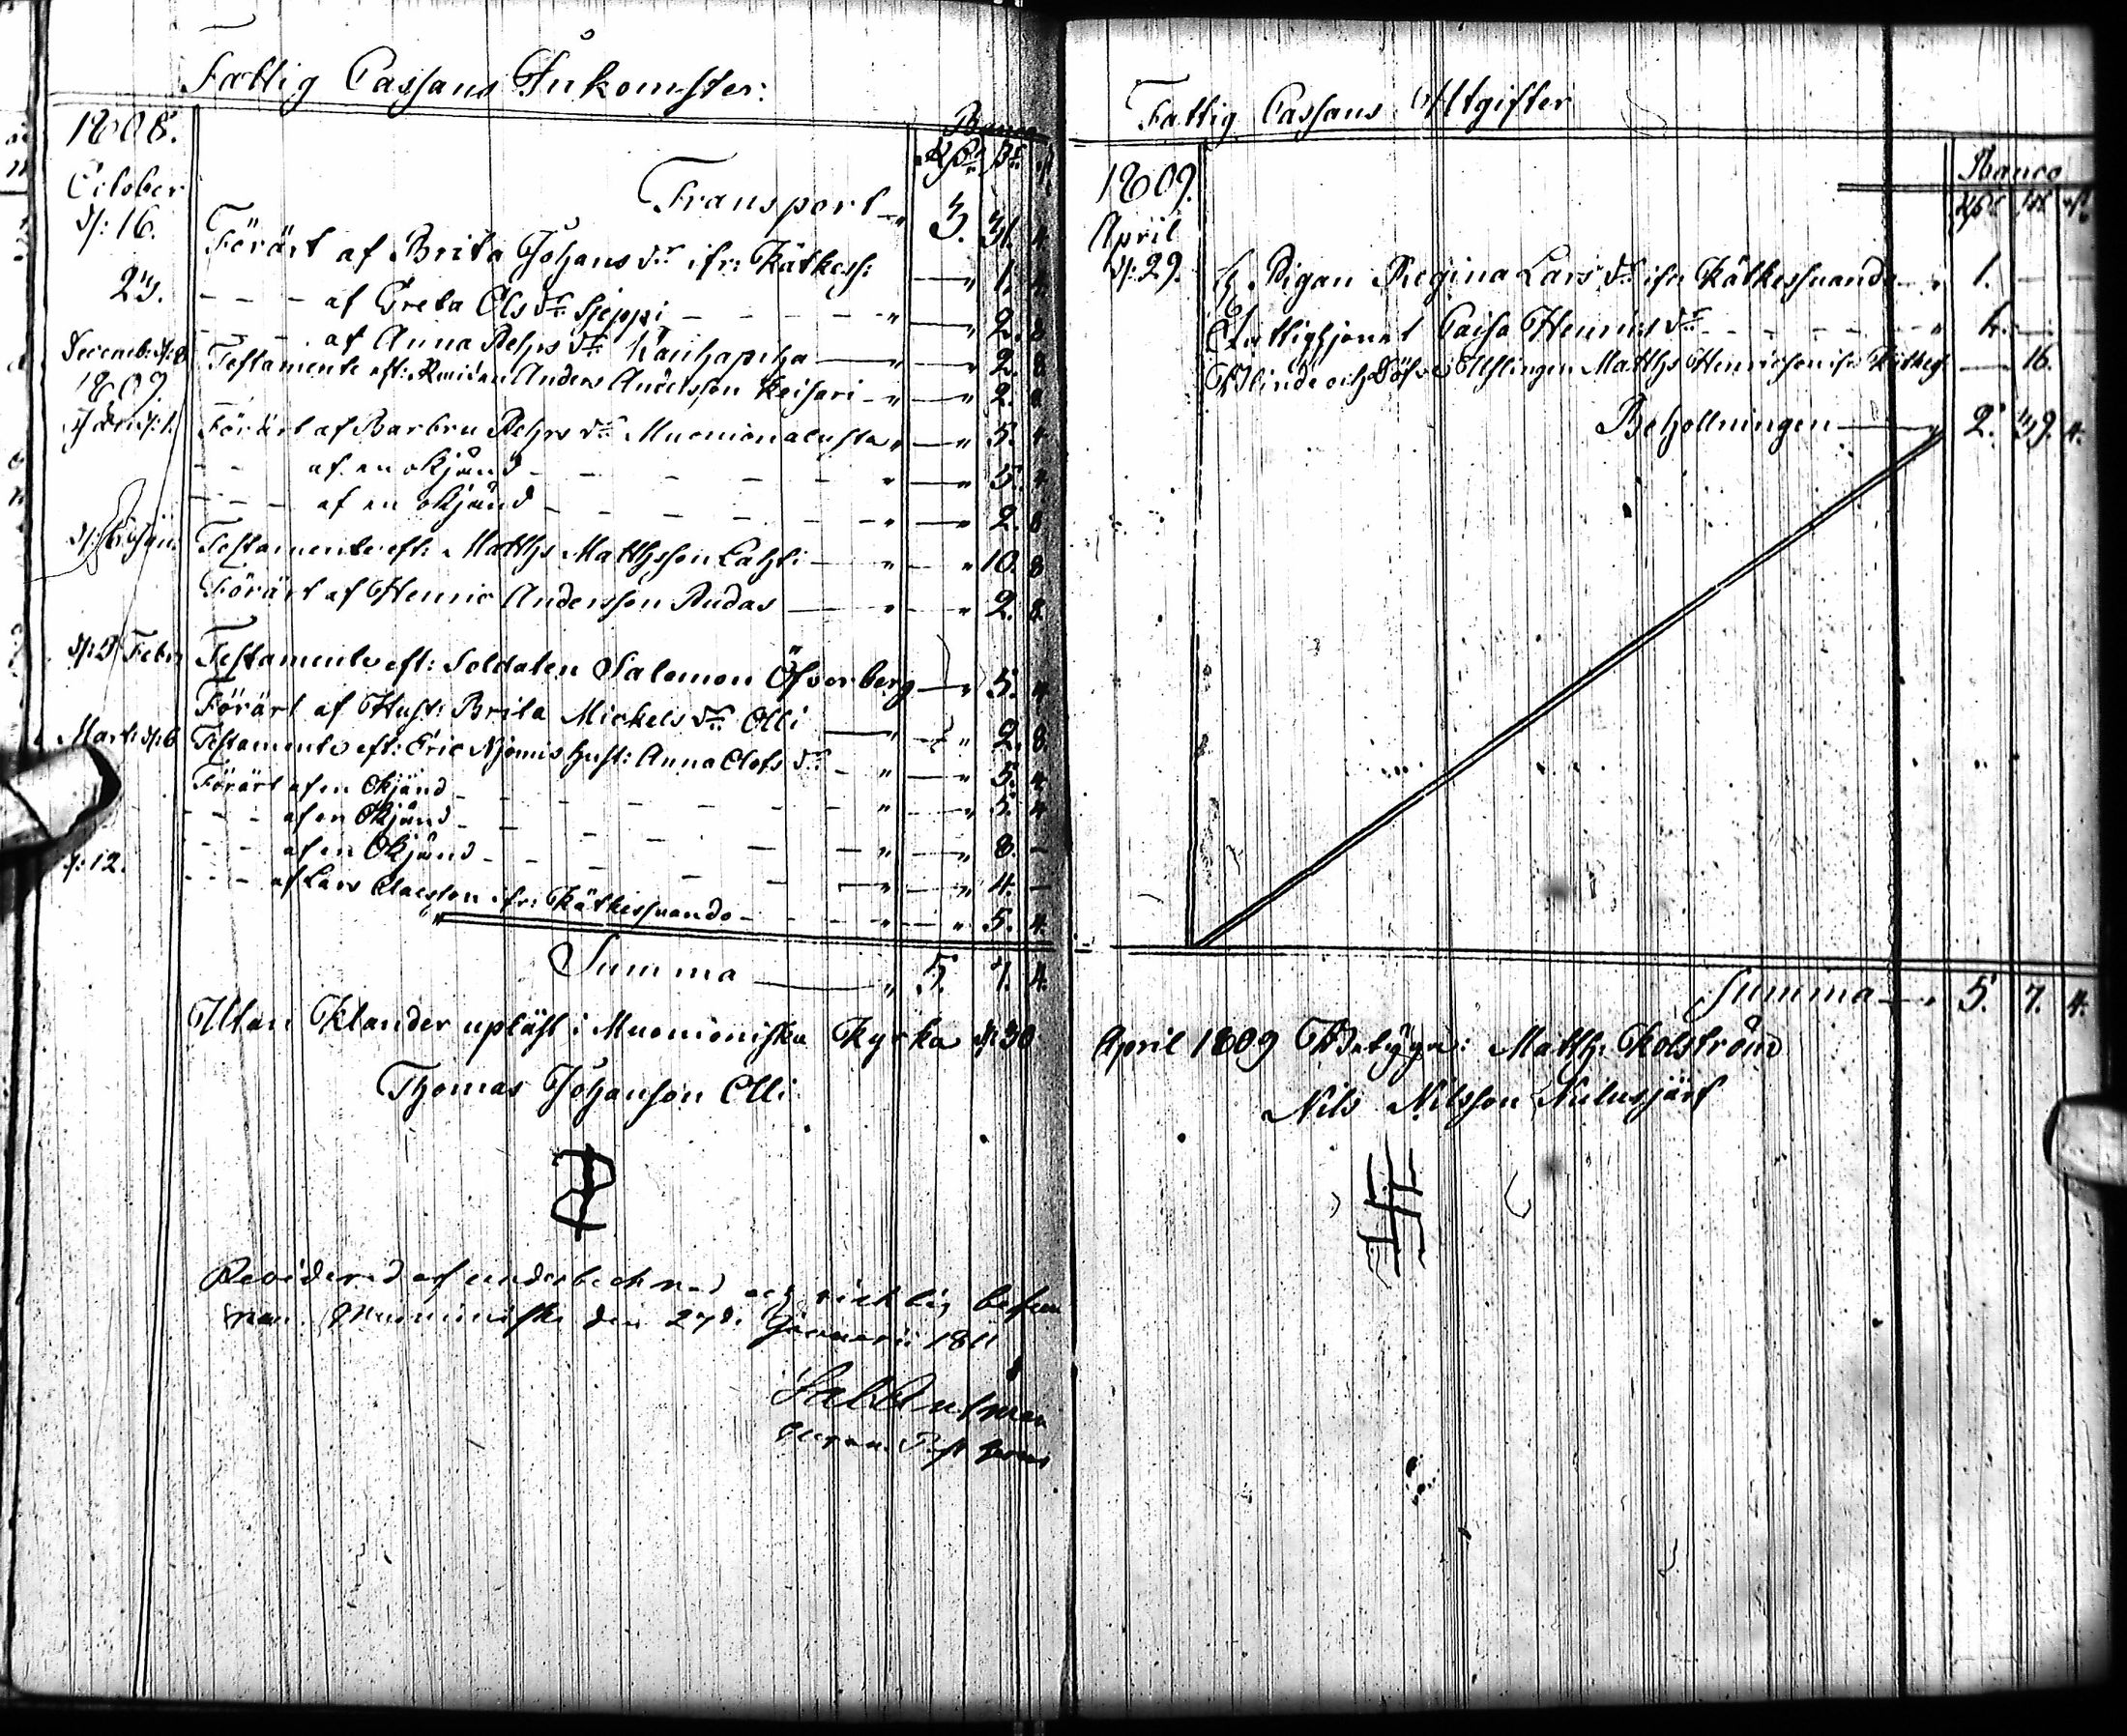 Fattig Cassans Inkomster:
1808.
Banco
Rdr ß r
October
Transport 3. 31. 4.
d: 16. Förärt af Brita Johans dr ifr: Kätkess: 1. 4.
23. af Greta Ols dr Sjeppi 2. 8
af Anna Pehrs dr Kauhapiha 2. 8
Decemb: d: 8 Testamente eft: Anders Andersson Keisari 2. 8
1809.
d: 1. Förärt af Barbru Pehrs dr Muonionalusta 5. 4
af en okjänd 5. 4
af en okjänd 2. 8
Testamente eft: Matths Matthsson Lahti 10. 8
Förärt af Henric Andersson Rudas 2. 8.
d: 2 Febr Testamente eft: Soldaten Salomon Öfverberg 5. 4
Förärt af Hust: Brita Mickels dr Olli 2. 8
Mart: d: 6 Testamente eft: Eric Njemis Hust: Anna Olofs dr 5. 4
Förärt af en Okjänd 5. 4
af en Okjänd 8. -
af en Okjänd 4. -
d: 12. af Lars Claesson ifr: Kätkessuando 5. 4.
Summa 5. 7. 4.
Utan Klander upläst i Muonioniska Kyrka d: 30
Thomas Johansson Olli
Reviderad af undertecknad och richtig befun
nen. Muonioniska den 27de Januarii 1811
Fattig Cassans Utgifter
1809.
Banco
April
d: 29. Pigan Regina Lars dr ifr Kätkessuando 1. - -
Fattighjonet Caisa Henrics dr 1. - -
Blinde och Döfve Ynglingen Matths Henricsson ifr Kätkes 16.
Behollningen 2. 39. 4.
Summa 5. 7. 4.
April 1809 Betyga: Matth: Kolström
Nils Nilsson Niilusjärf